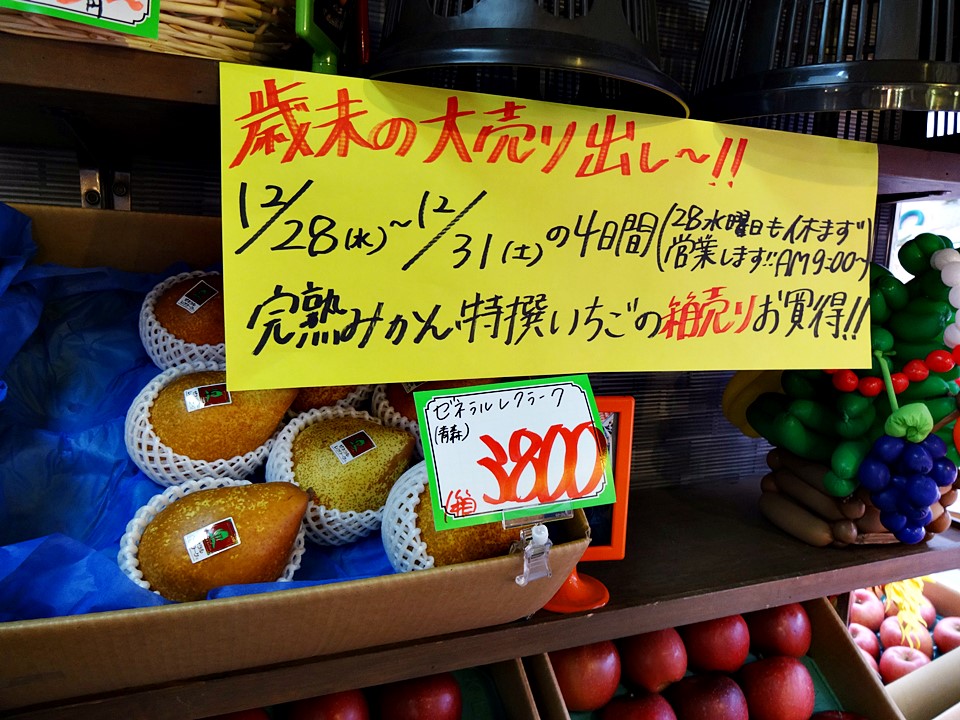 歳末の大売り出し〜!!
12/28(水)〜12/31(土)の4日間(28水曜日も休まず営業します!!AM9:00〜)
完熟みかん、特撰いちごの箱売りお買得!!
ゼネラルレクラーク
(青森)
(箱)3800
円